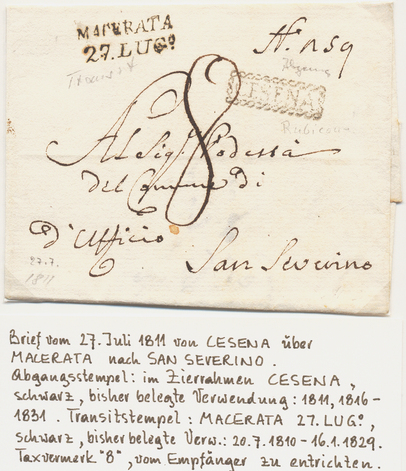 MACERATA
27. LUG.º
Nº 1159
CESENA
Rubicone
8
Al Sig.r Podestà
del Comune di
d'Ufficio
San Severino
27.7.
1811
Brief vom 27. Juli 1811 von CESENA über
MACERATA nach SAN SEVERINO.
Abgangsstempel: im Zierrahmen CESENA,
schwarz, bisher belegte Verwendung: 1811, 1816-
1831. Transitstempel: MACERATA 27. LUGº,
schwarz, bisher belegte Verw.: 20.7.1810 - 16.1.1829.
Taxvermerk "8", vom Empfänger zu entrichten.